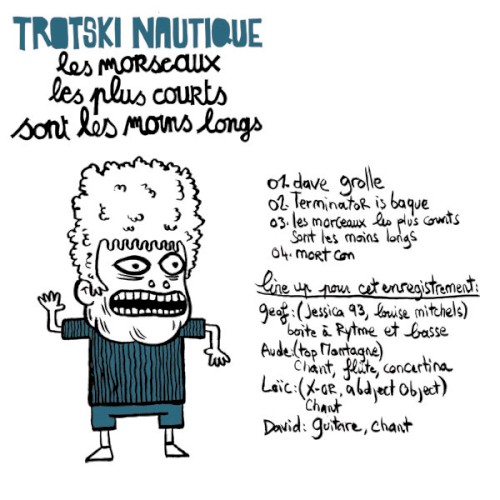 TROTSKI NAUTIQUE
les morseaux
les plus courts
sont les moins longs
01. dave grolle
02. Terminator is baque
03. les morceaux les plus courts
sont les moins longs
04. mort con
line up pour cet enregistrement:
Geof: (Jessica 93, louise mitchels)
boite à Rytme et basse
Aude: (top Montagne)
Chant, flûte, concertina
Loïc: (X-OR, abdject Object)
Chant
David: guitare, chant